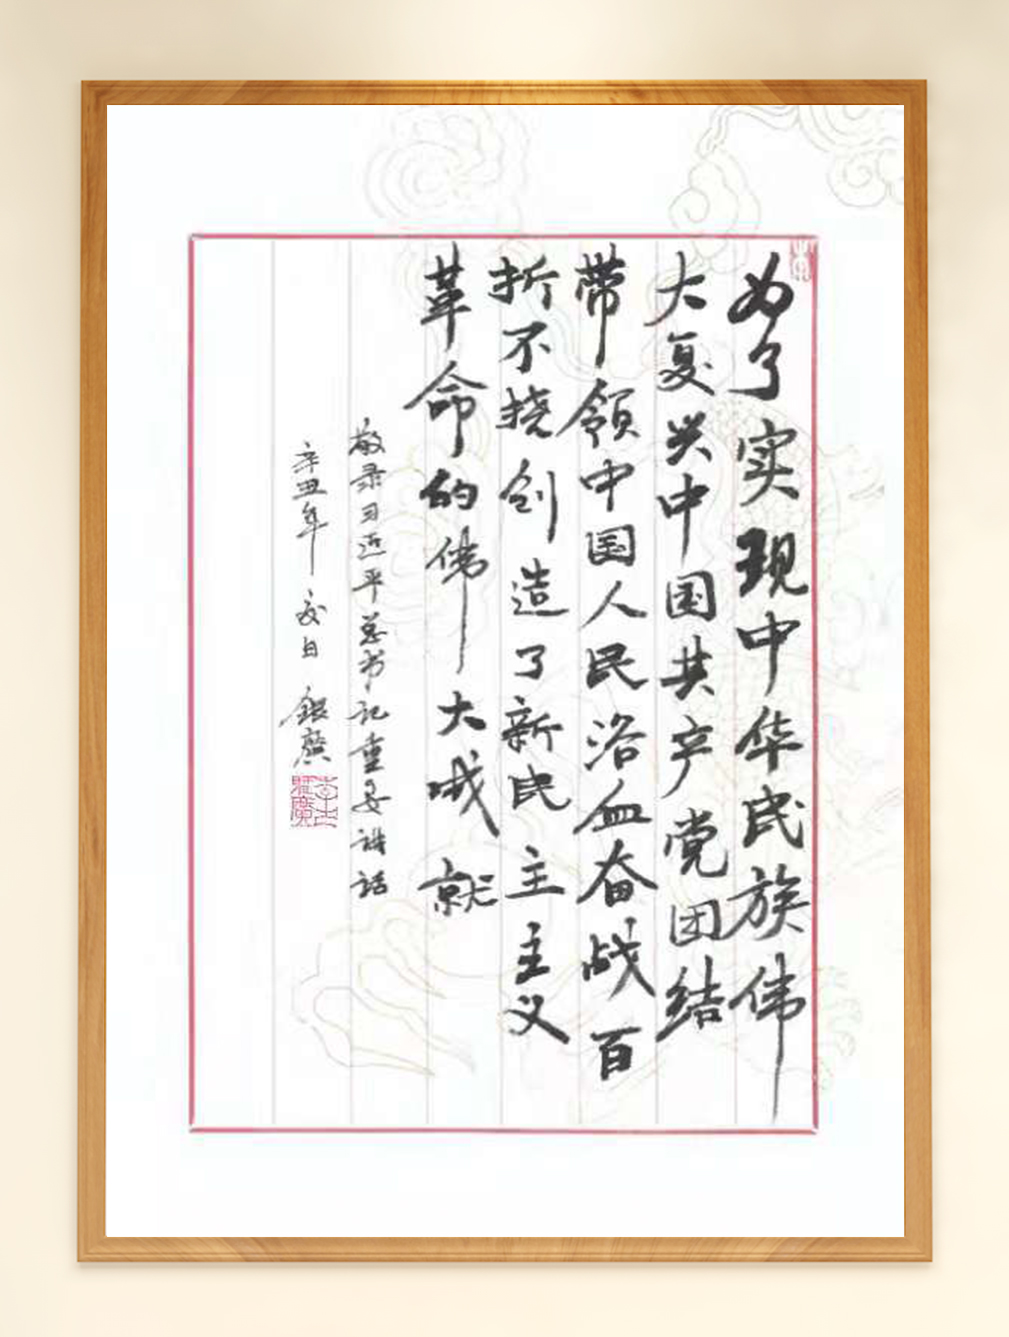 为了实现中华民族伟
大复兴中国共产党团结
带领中国人民浴血奋战百
折不挠创造了新民主主义
革命的伟大成就
敬录习近平总书记重要讲话
辛丑年夏日銀廣